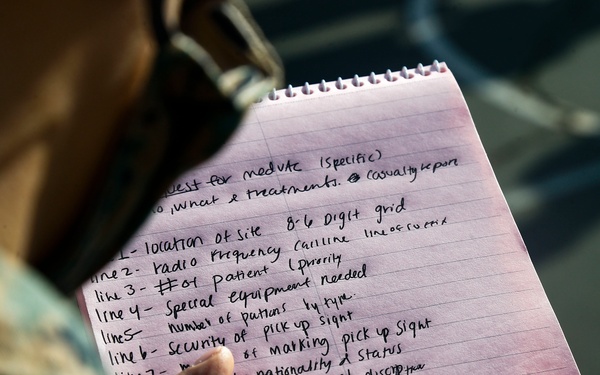 uest for medvac (specific)
o, what & treatments. casualty report
1- location of site 8-6 Digit grid
line 2- radio frequency callline line of suffix
line 3- # of patient (priority
line 4- Special equipment needed
line 5- number of pations by type.
line 6- security of pick up sight
of marking pick up sight
nationality & status